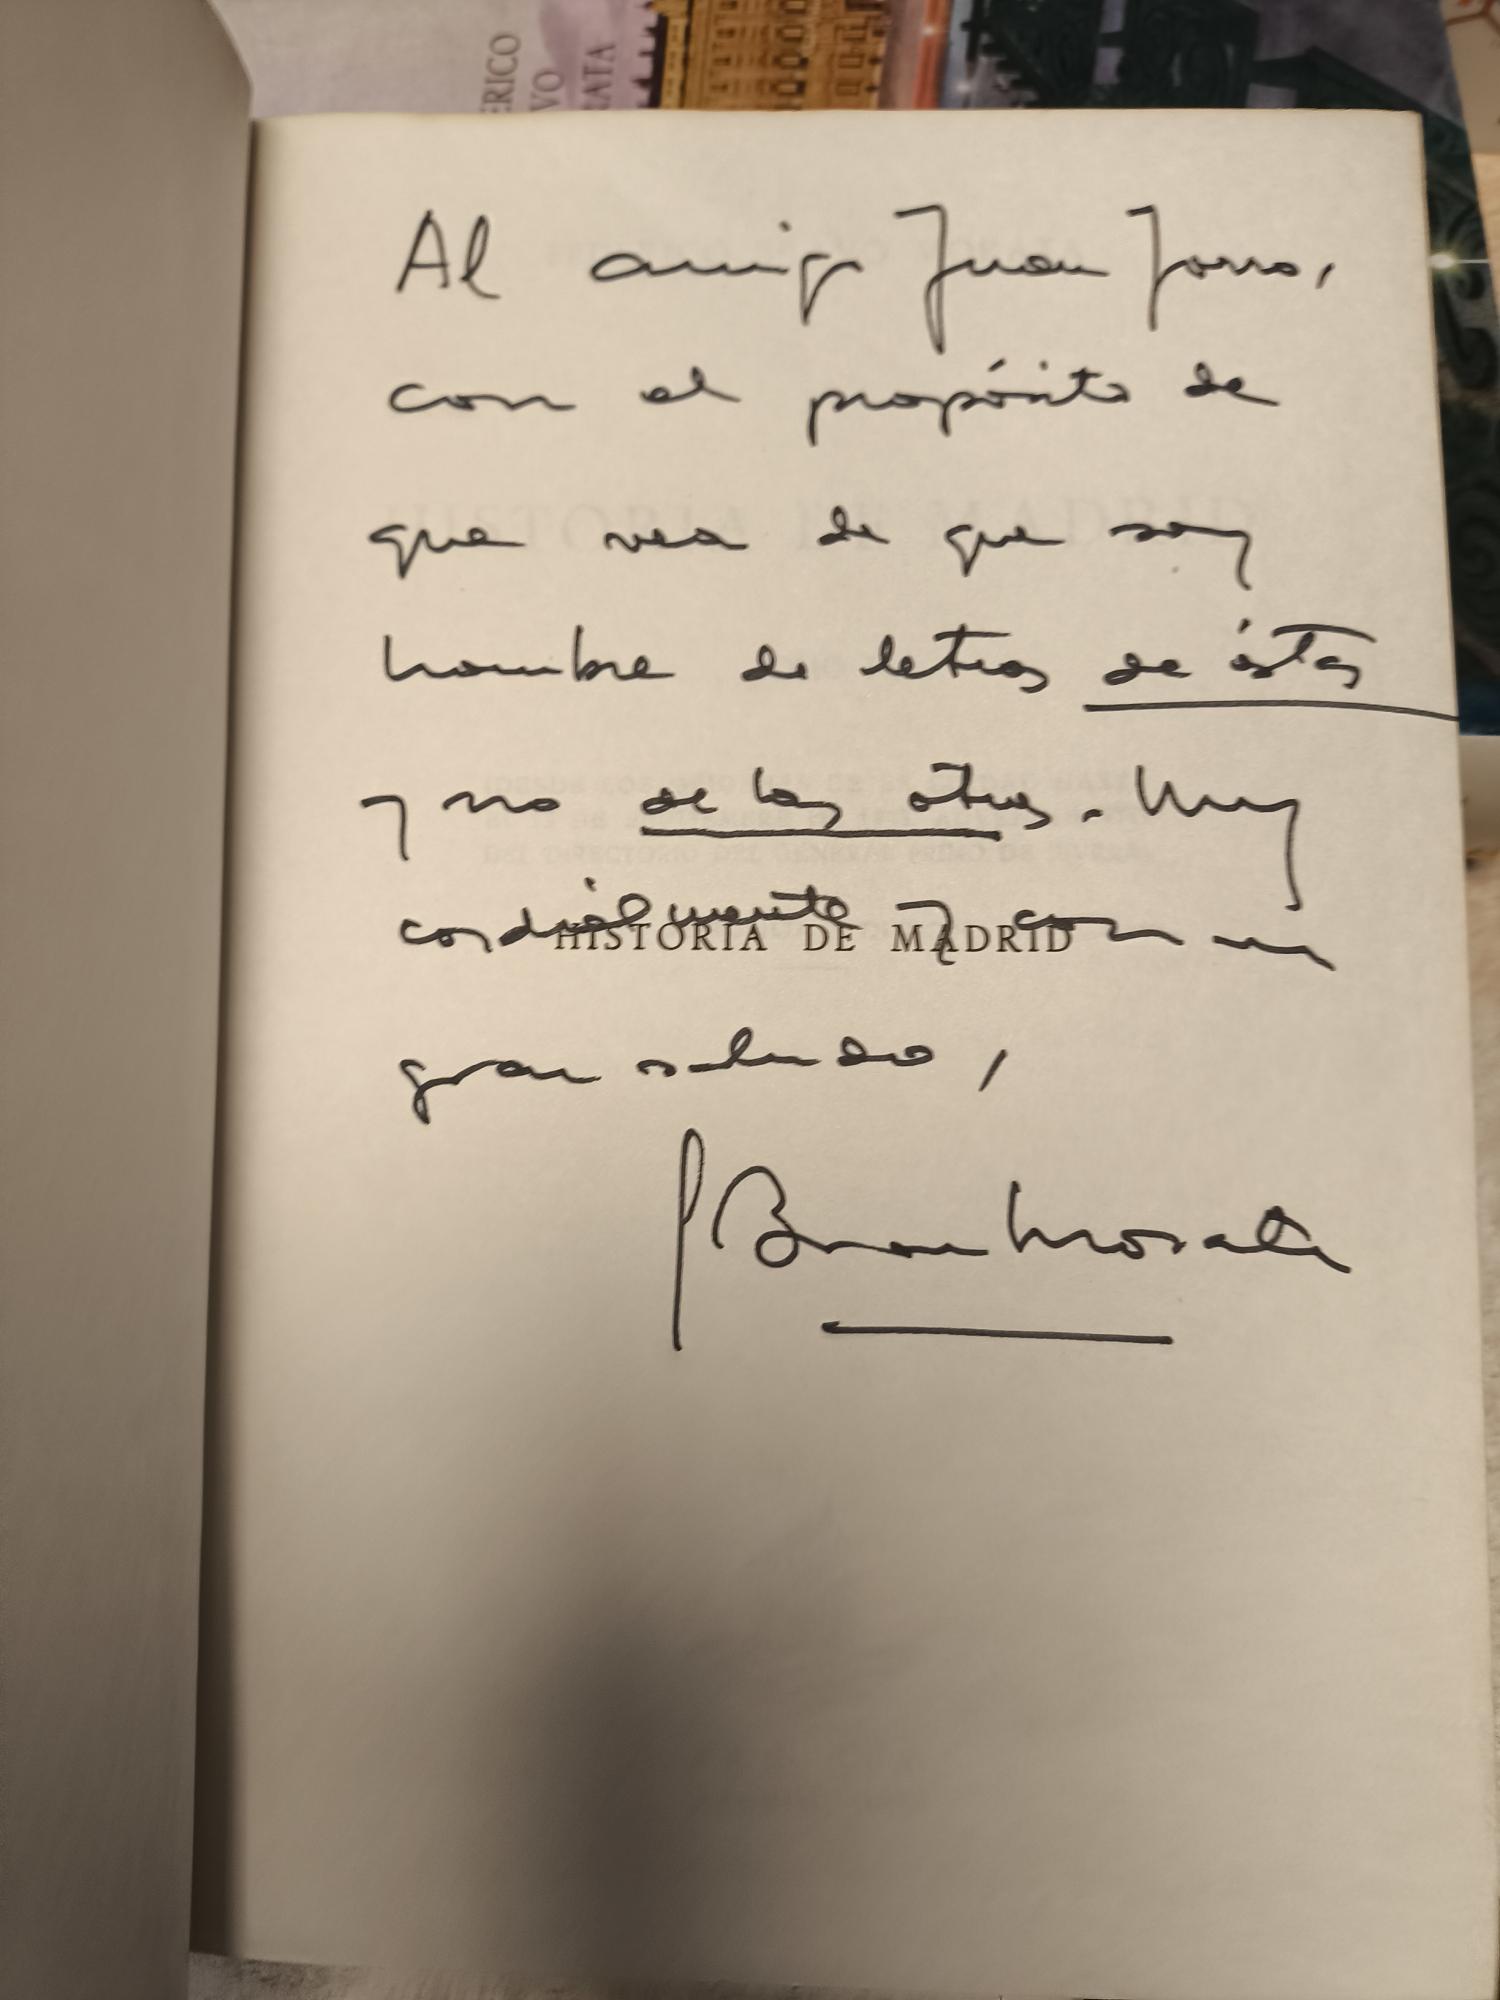 ERICO
VO
RATA
Al amigo Juan Jorro,
con el propósito de
que vea de que soy
hombre de letras de éstas
y no de las otras. Muy
cordialmente y con un
HISTORIA DE MADRID
gran saludo,
F Bravo Morata